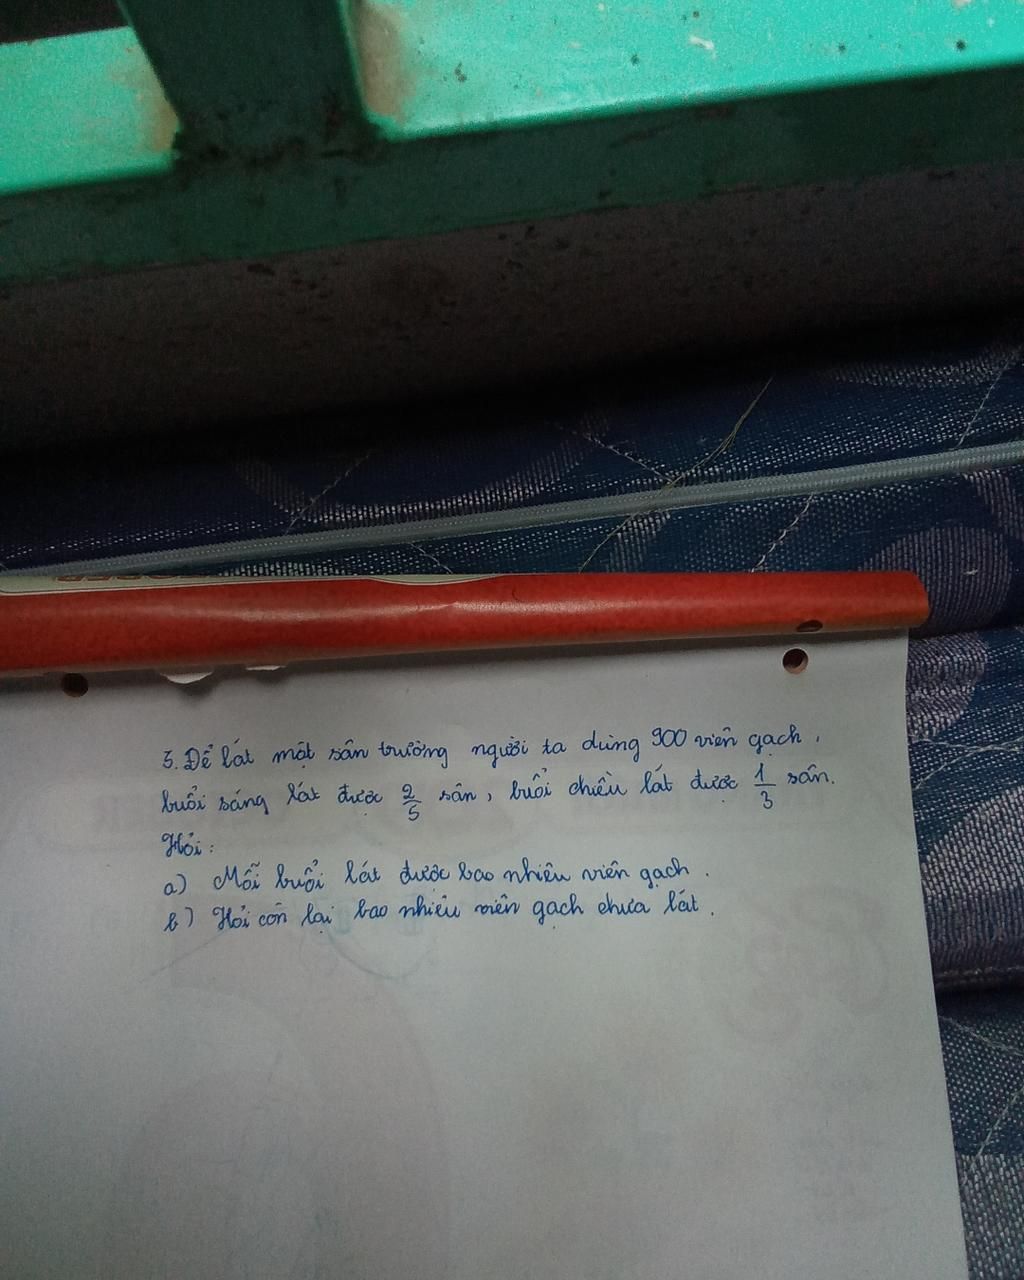 5. Để lát một sân trường người ta dùng 900 viên gạch,
buổi sáng lát được 2/5 sân, buổi chiều lát được 1/3 sân.
Hỏi:
a) Mỗi buổi lát được bao nhiêu viên gạch.
b) Hỏi còn lại bao nhiêu viên gạch chưa lát.